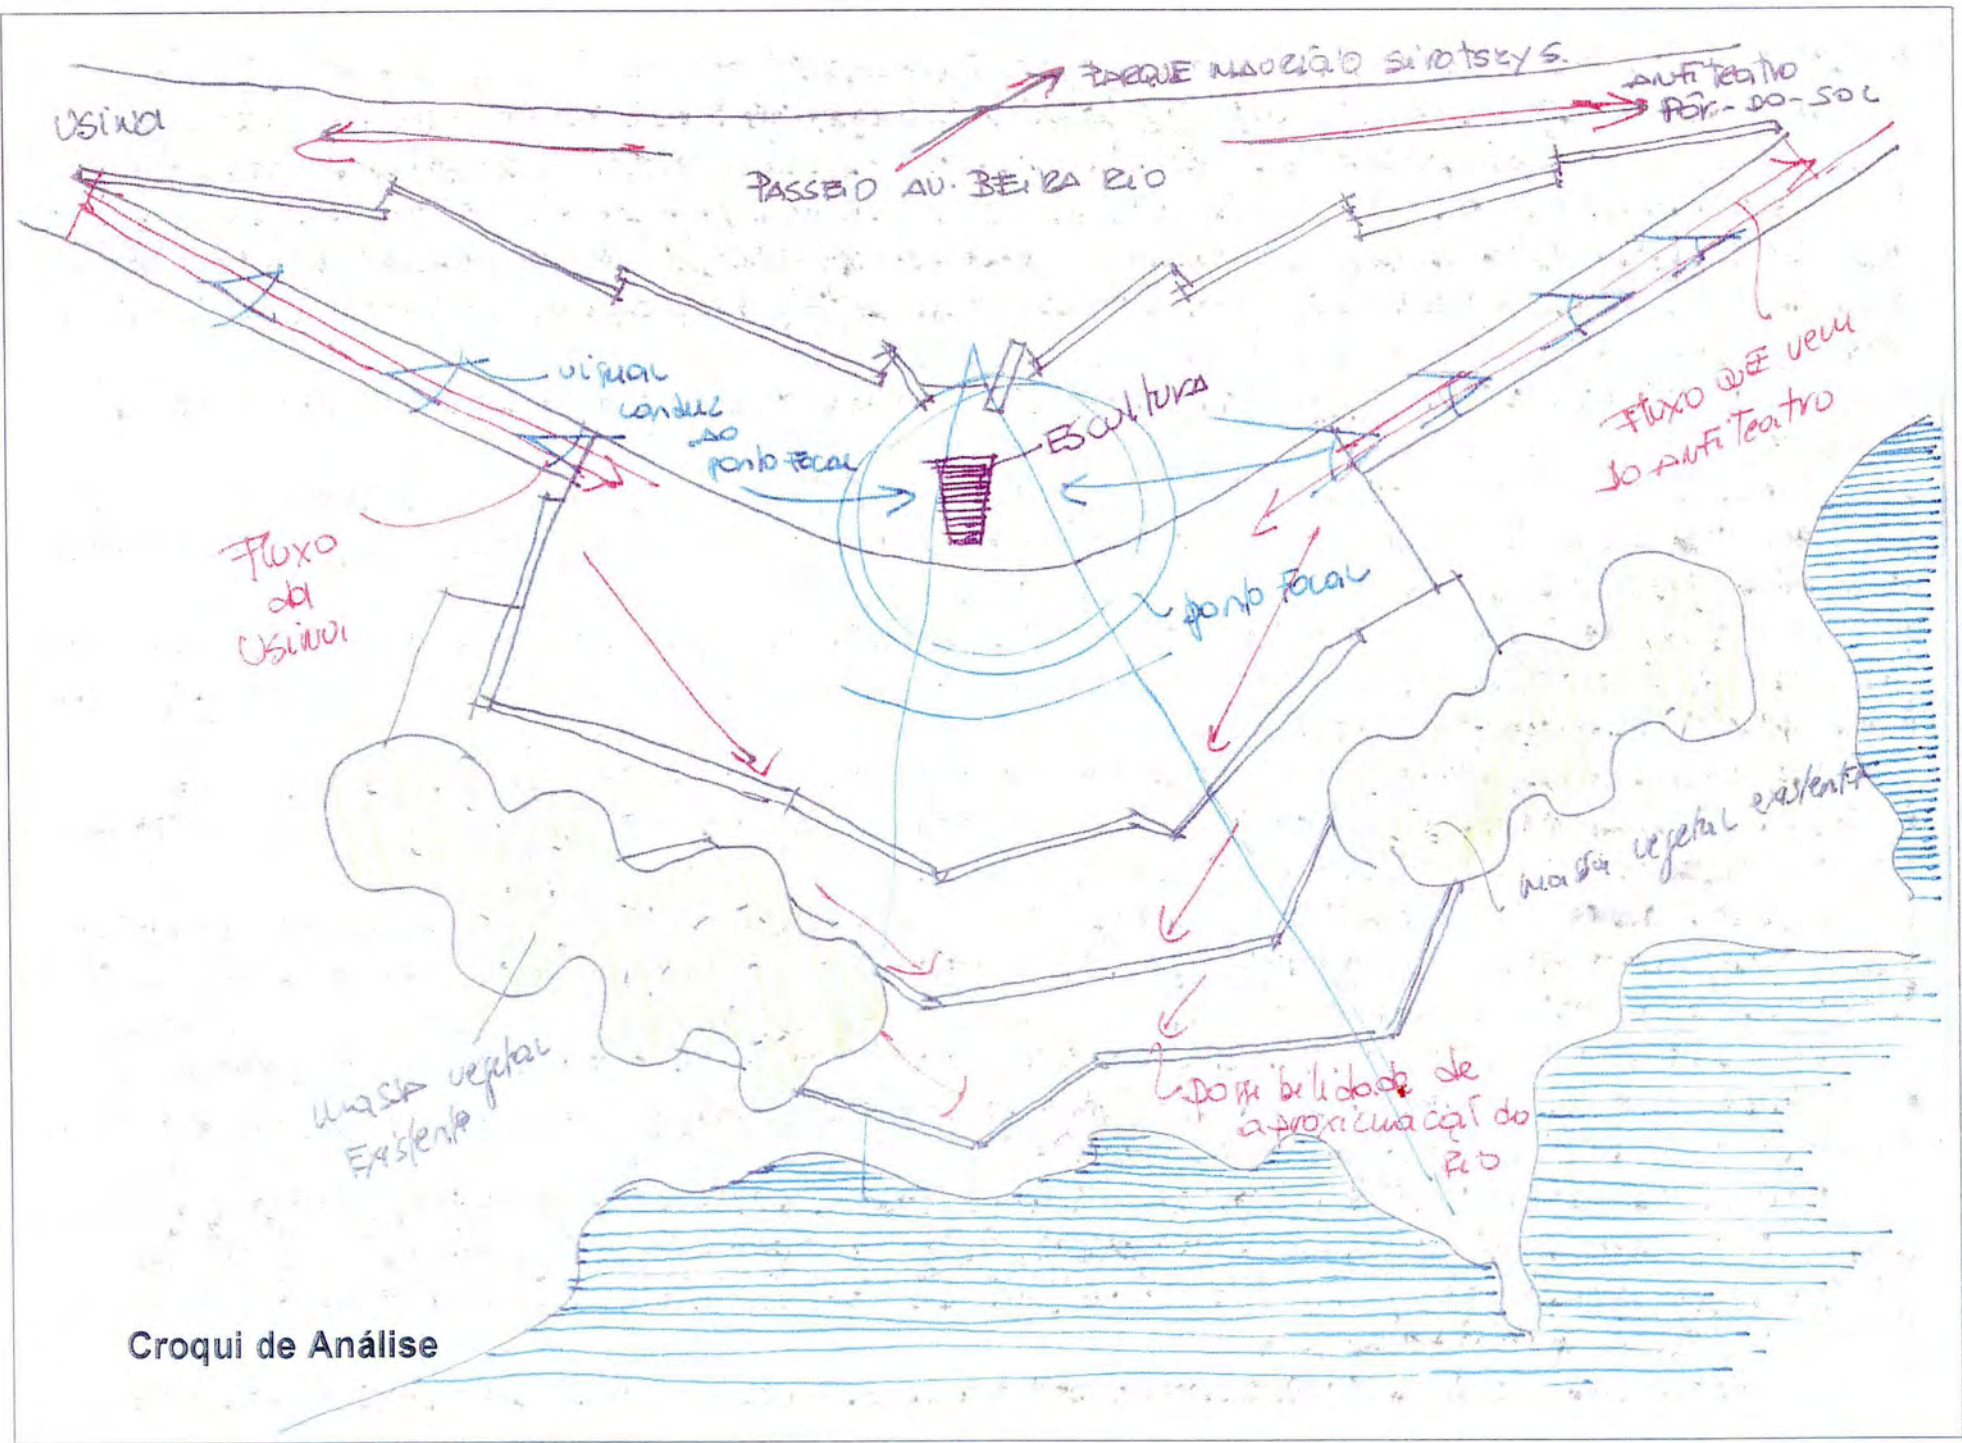 PARQUE MAURÍCIO Sirotsky S.
ANFITEATRO
PÔR-DO-SOL
USINA
PASSEIO AV. BEIRA RIO
visual
conduz
AO
ponto FOCAL
ESCULTURA
Fluxo QUE vem
do ANFITEATRO
Fluxo
da
USINA
ponto Focal
massa vegetal existente
massa vegetal
Existente
possibilidade de
aproximação do
RIO
Croqui de Análise